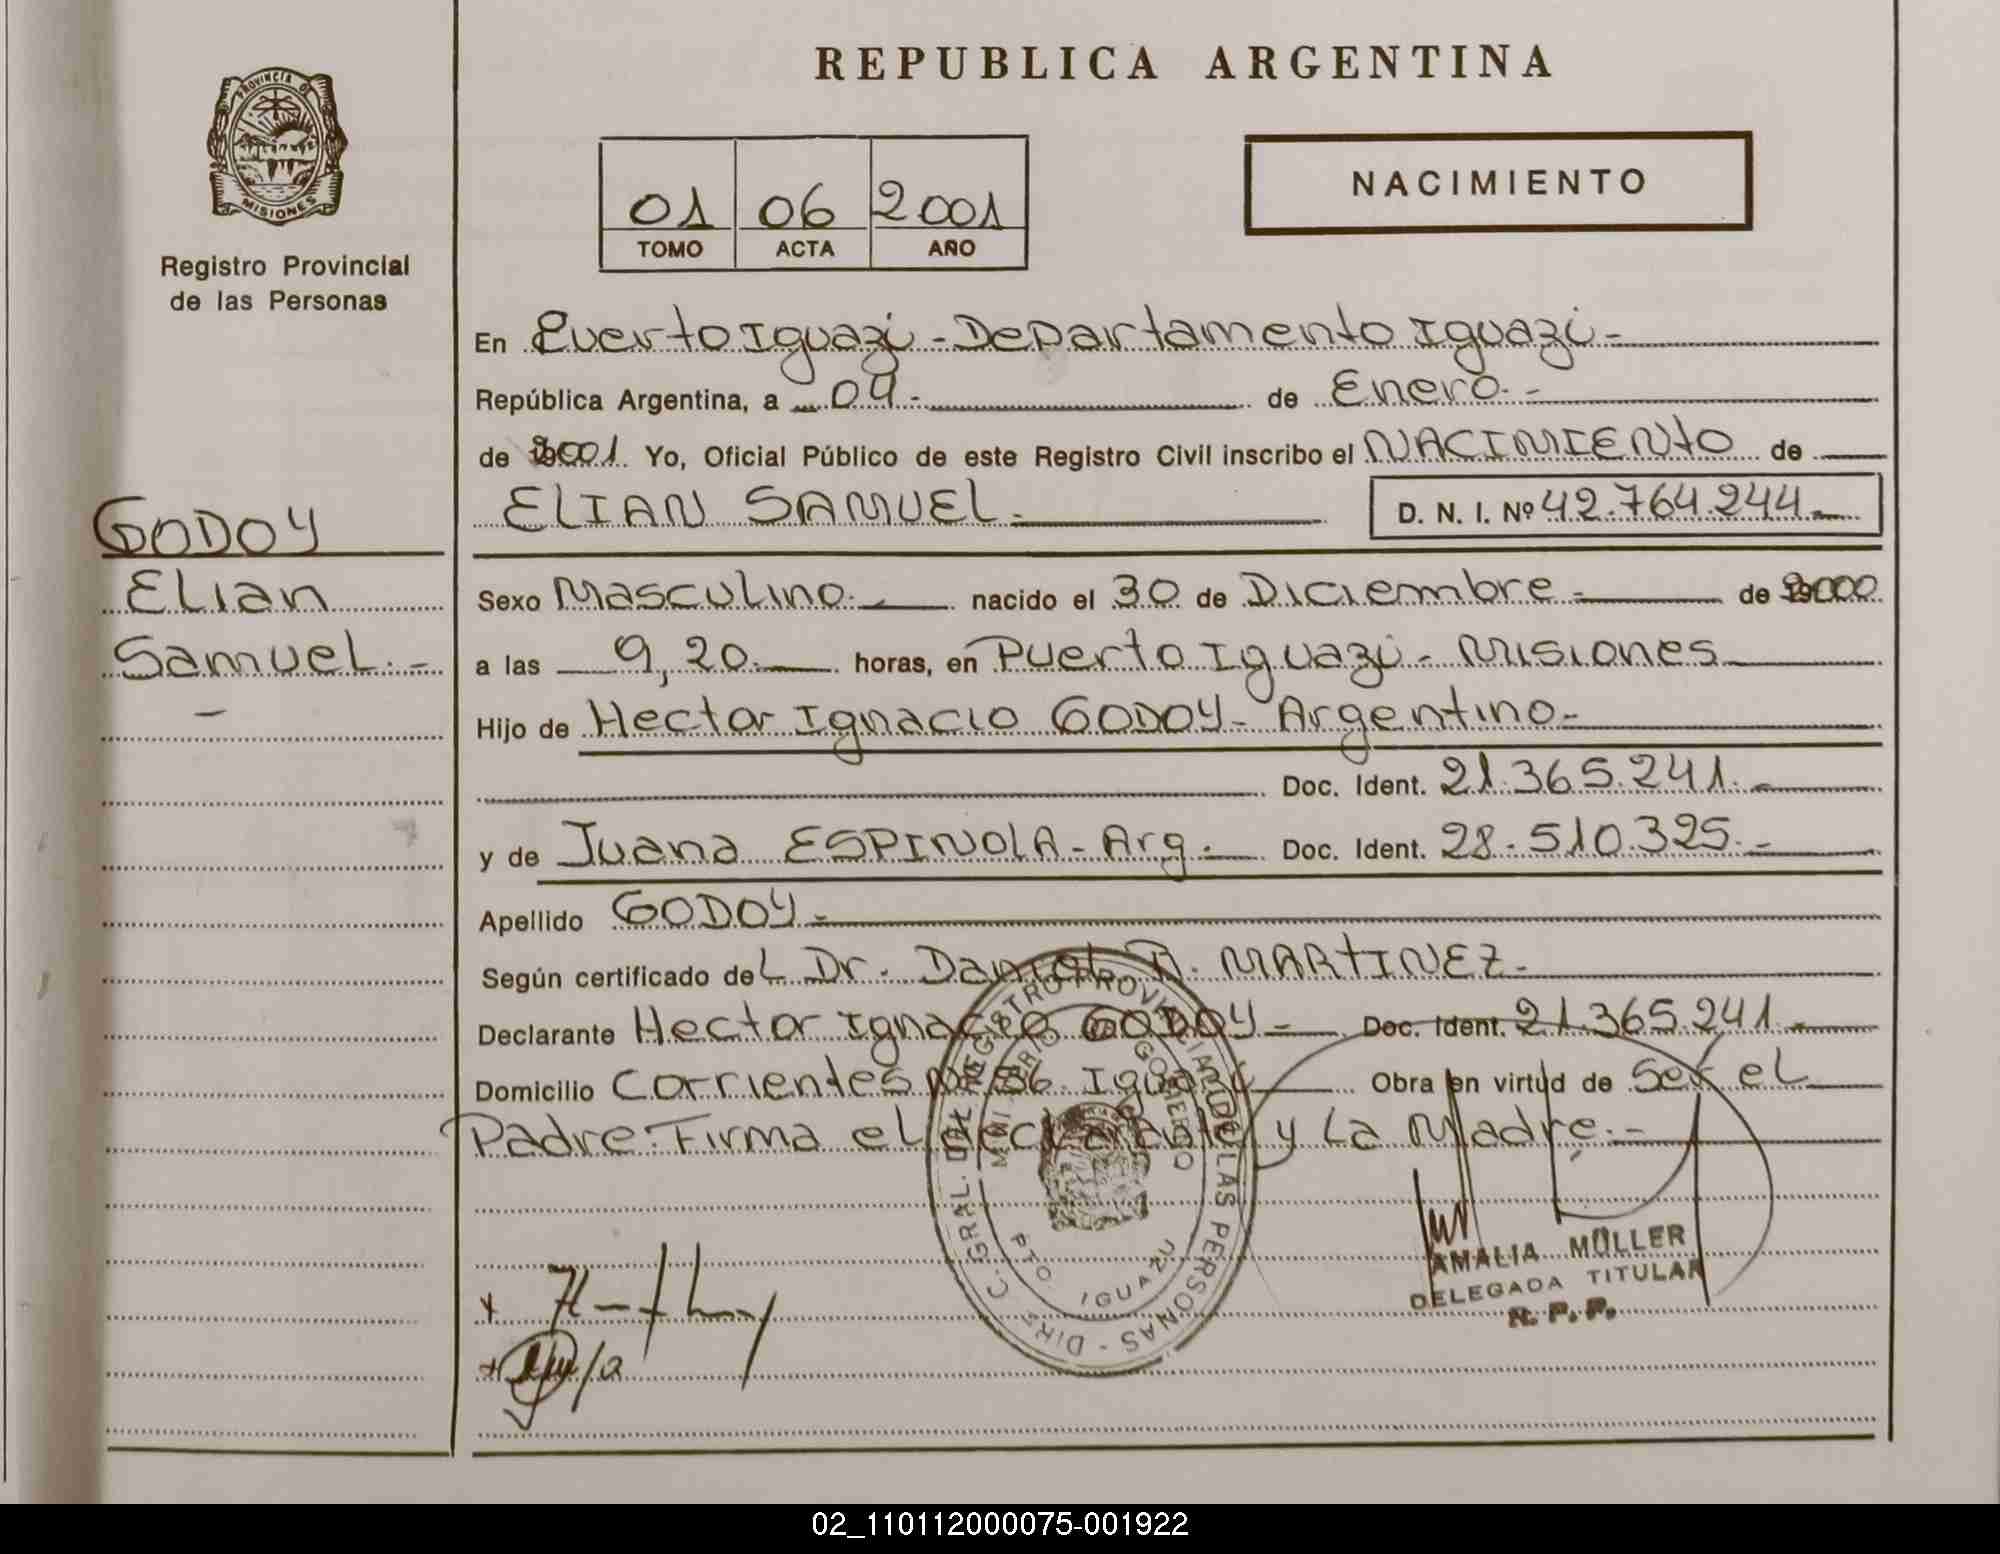 REPUBLICA ARGENTINA
PROVINCIA DE
MISIONES
Registro Provincial
de las Personas
01 06 2001
TOMO ACTA AÑO
NACIMIENTO
En Puerto Iguazú - Departamento Iguazú -
República Argentina, a 04 - de Enero. -
de 2001. Yo, Oficial Público de este Registro Civil inscribo el NACIMIENTO de
ELIAN SAMUEL. D. N. I. Nº 42.764.244
GODOY
Elian
Samuel. -
Sexo Masculino. nacido el 30 de Diciembre - de 2000
a las 9,20 horas, en Puerto Iguazú - Misiones
Hijo de Hector Ignacio GODOY - Argentino -
Doc. Ident. 21.365.241. -
y de Juana ESPINOLA - Arg. - Doc. Ident. 28.510.325. -
Apellido GODOY -
Según certificado del Dr. Daniel R. MARTINEZ -
Declarante Hector Ignacio GODOY - Doc. Ident. 21.365.241. -
Domicilio Corrientes Iguazú Obra en virtud de Ser el
Padre. Firma el declarante y La Madre. -
DIR. GRAL. DEL REGISTRO PROVINCIAL DE LAS PERSONAS
MINISTERIO GOBIERNO
PTO. IGUAZU
AMALIA MÜLLER
DELEGADA TITULAR
R. P. P.
02_110112000075-001922